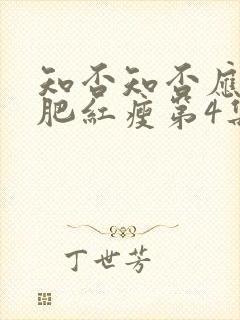 知否知否應
肥紅瘦第4集
丁世芳